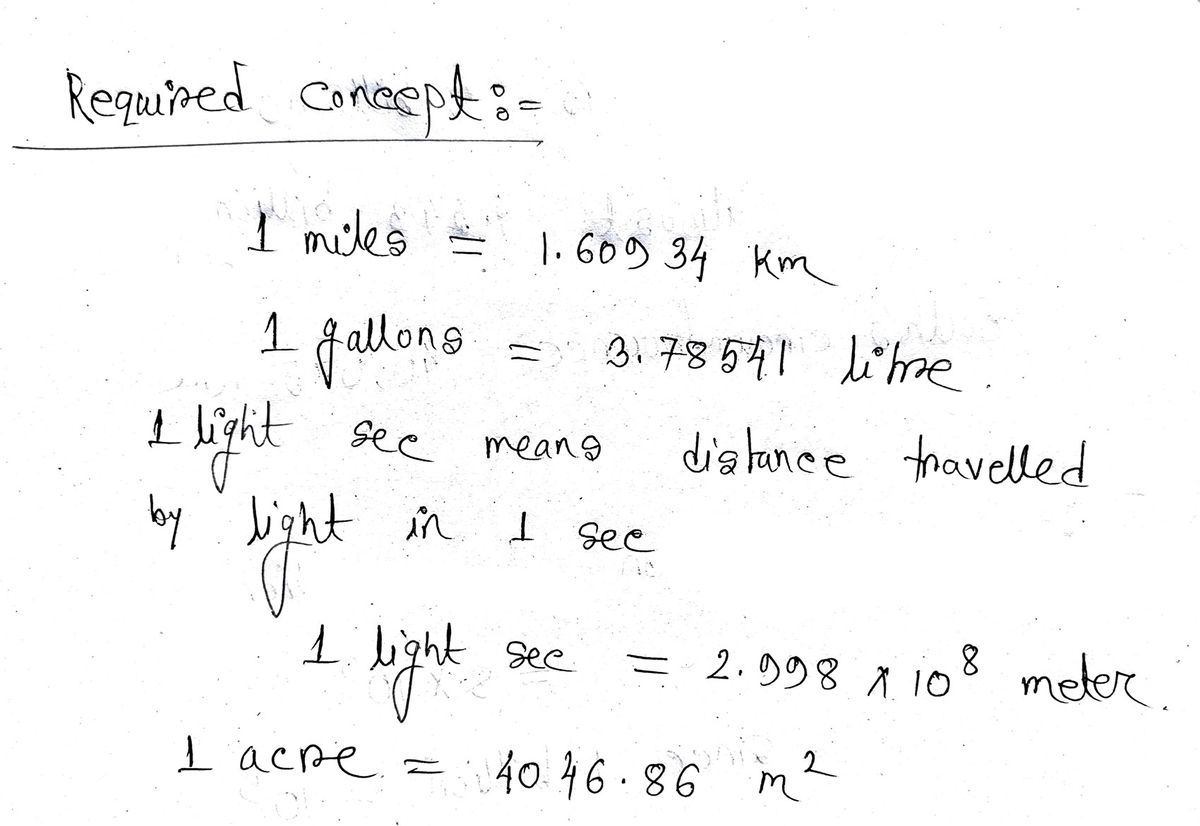 Required concept :=
1 miles = 1.60934 Km
1 gallons = 3.78541 litre.
1 light sec means distance travelled
by light in 1 sec
1 light sec = 2.998 x 10⁸ meter.
1 acre = 4046.86 m²